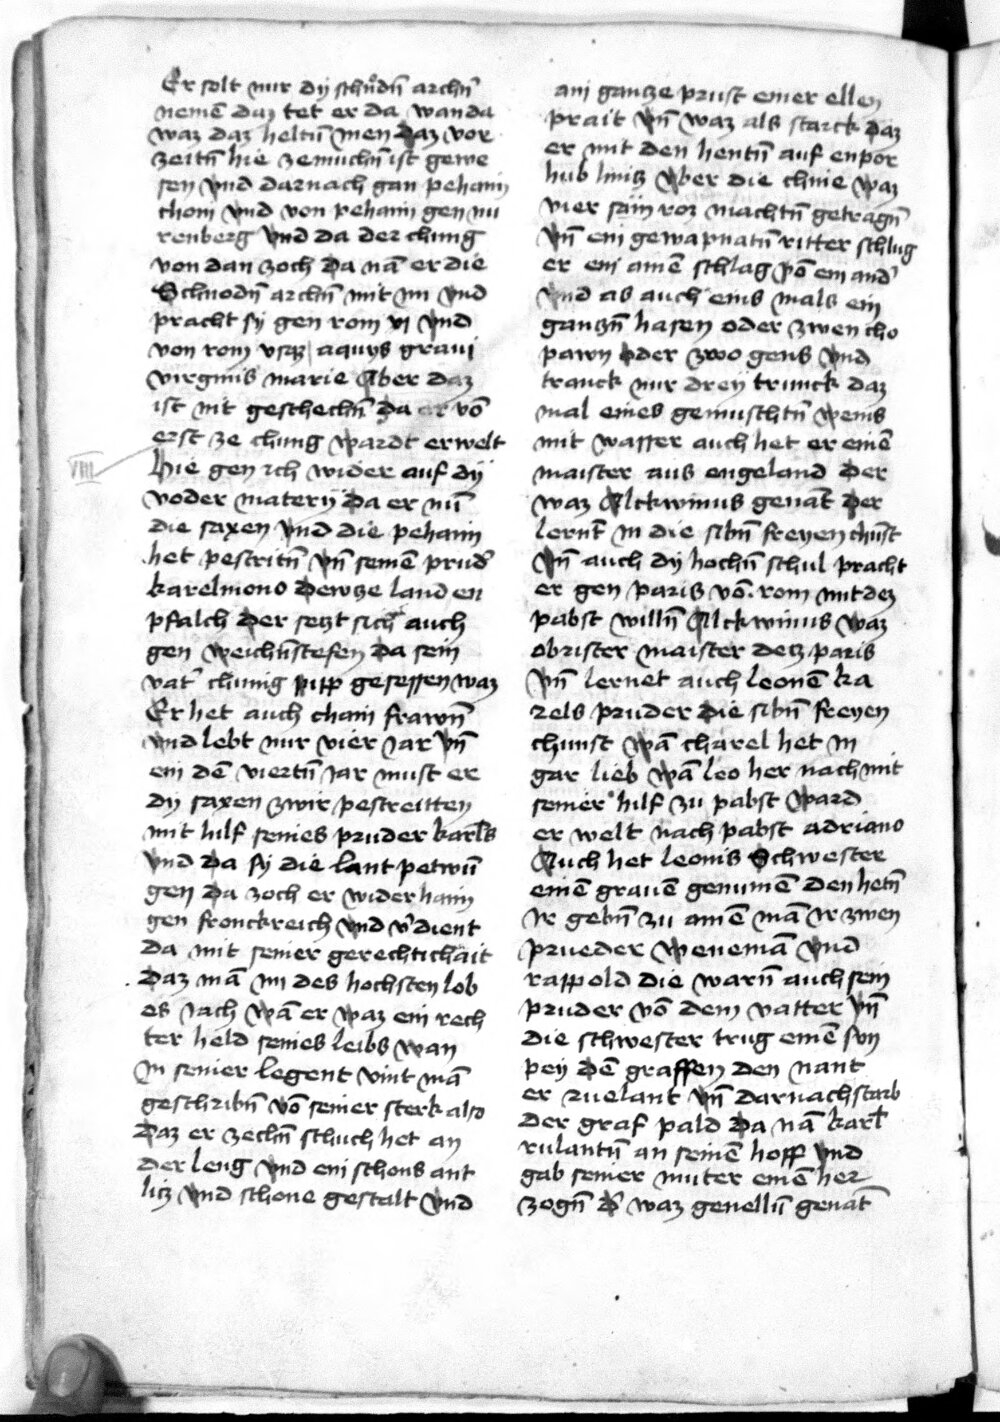 Er solt nur dy schnödn̄ archn̄
nemē daz tet er da wanda
waz daz heltū men daz vor
zeitn̄ hie zemuchn̄ ist gewe
sen vnd darnach gan pehaim
chom vnd von pehaim gen nu
renberg vnd da der chung
von dan zoch da nā er die
Schnodn̄ archn̄ mit im vnd
pracht sy gen rom vj vnd
von rom vsqz aquys graui
virginis marie Aber daz
ist nit geschechn̄ da er vō
erst ze chung wardt erwelt
VIII
Hie gen ich wider auf dÿ
voder materÿ da er nū
die saxen vnd die pehaim
het pestritn̄ vn̄ seinē prud'
karelmono dewtze land en
pfalch der setzt sich auch
gen weichn̄stefen da sein
vat' chunig pipp gesessen waz
Er het auch chain frawn̄
vnd lebt nur vier jar vn̄
ein dē viertn̄ jar must er
dy saxen zwir pestreitten
mit hilf seines pruder karls
vnd da sy die lant petwū
gen da zoch er wider haim
gen franckreich vnd v'dient
da mit seiner gerechtichait
daz mā im des hochsten lob
es jach wā er waz ein rech
ter held seines leibs wan
In seiner legent vint mā
geschribn̄ vō seiner sterk also
daz er zechn̄ schuch het an
der leng vnd ein schons ant
litz vnd schone gestalt vnd
ain gantze prust einer ellen
prait vn̄ waz als starck daz
er mit den hentn̄ auf enpor
hub hintz vber die chnie waz
vier sain roz machtn̄ getragn̄
vn̄ ein gewapnatn̄ ritter schlug
er ein ainē schlag vō ein and'
vnd as auch eins mals ein
gantzn̄ hasen oder zwen cho
pawn oder zwo gens vnd
tranck nur dreÿ trunck daz
mal eines gemischtn̄ weins
mit wasser auch het er einē
maister aus engeland der
waz Alckwinus genāt der
lernt in die sibn̄ freyen chūst
vn̄ auch dy hochn̄ schul pracht
er gen paris vō rom mit dez
pabst willn̄ Alckwinus waz
obrister maister detz paris
vn̄ lernet auch leonē ka
rels pruder die sibn̄ freyen
chunst wā charel het in
gar lieb wā leo her nach mit
seiner hilf zu pabst ward
er welt nach pabst adriano
Auch het leonis Schwester
einē grauē genumē den hetn̄
ir gebn̄ zu ainē mā ir zwen
prueder wenemā vnd
rappold die warn̄ auch sein
pruder vō dem vatter vn̄
die schwester trug einē sun
pey dē graffen den nant
er ruelant vn̄ darnach starb
der graf pald da nā karl
rulantn̄ an seinē hoff vnd
gab seiner muter einē her
zogn̄ d' waz genellū genāt